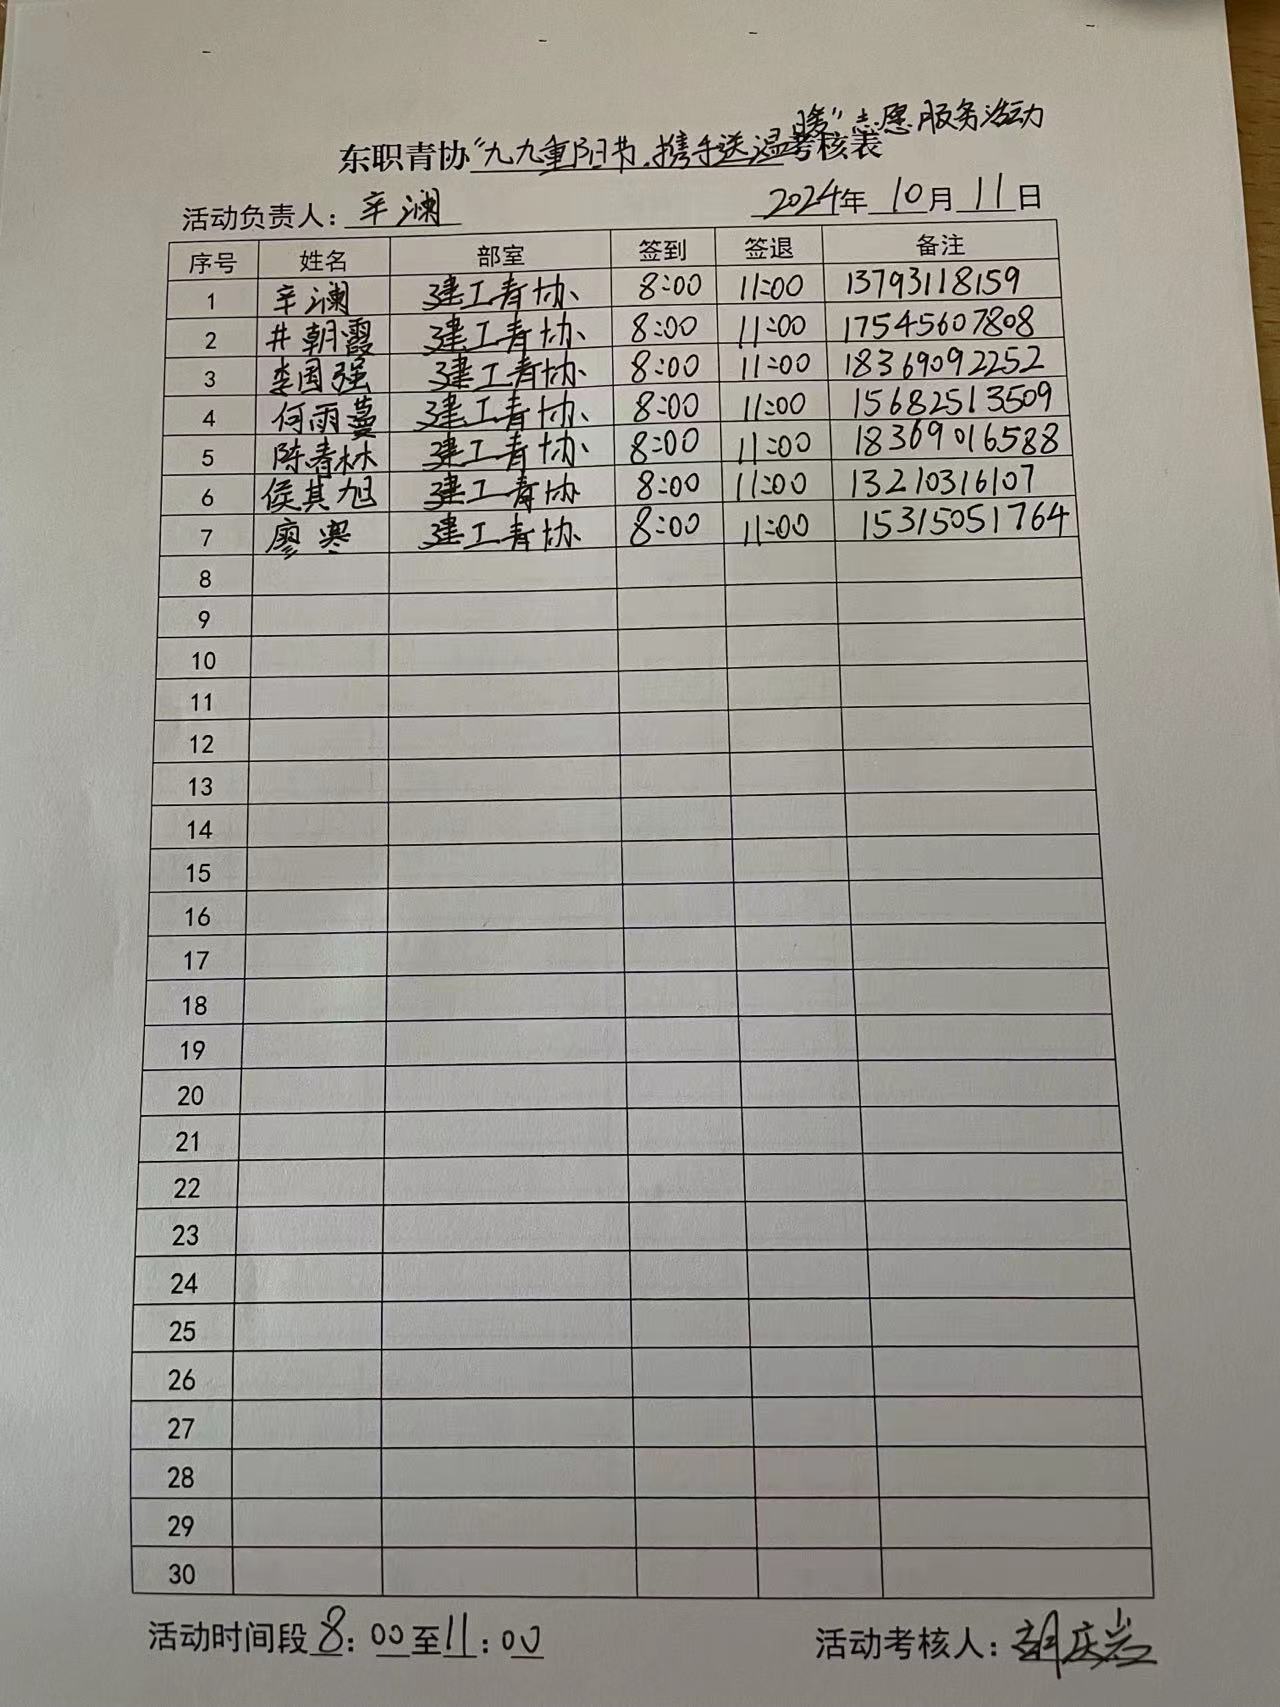 东职青协“九九重阳节,携手送温暖”志愿服务活动考核表
活动负责人: 辛澜 2024年 10月 11日
序号 姓名 部室 签到 签退 备注
1 辛澜 建工青协 8:00 11:00 13793118159
2 井朝霞 建工青协 8:00 11:00 17545607808
3 李国强 建工青协 8:00 11:00 18369092252
4 何雨蔓 建工青协 8:00 11:00 15682513509
5 陈春林 建工青协 8:00 11:00 18369016588
6 侯其旭 建工青协 8:00 11:00 13210316107
7 廖寒 建工青协 8:00 11:00 15315051764
8
9
10
11
12
13
14
15
16
17
18
19
20
21
22
23
24
25
26
27
28
29
30
活动时间段 8:00至11:00 活动考核人: 胡庆岩